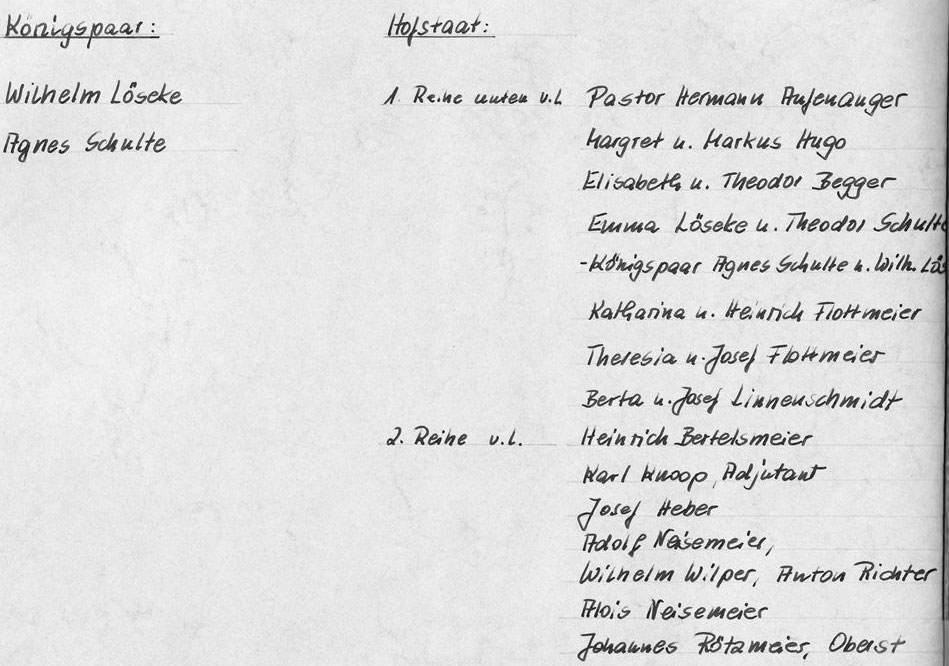 Königspaar: Hofstaat:
Wilhelm Löseke 1. Reihe unten v.l. Pastor Hermann Aufenanger
Agnes Schulte Margret u. Markus Hugo
Elisabeth u. Theodor Begger
Emma Löseke u. Theodor Schulte
-Königspaar Agnes Schulte u. Wilh. Lös
Katharina u. Heinrich Flottmeier
Theresia u. Josef Flottmeier
Berta u. Josef Linnenschmidt
2. Reihe v.l. Heinrich Bertelsmeier
Karl Knoop, Adjutant
Josef Heber
Adolf Neisemeier,
Wilhelm Wilper, Anton Richter
Alois Neisemeier
Johannes Rötzmeier, Oberst